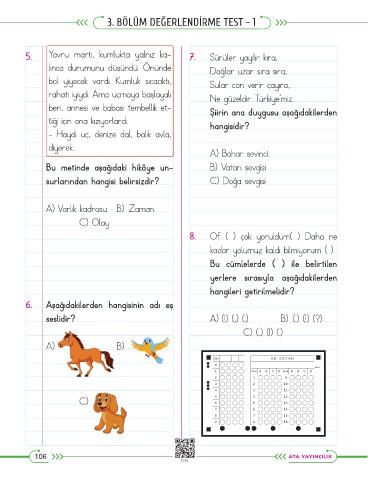 3. BÖLÜM DEĞERLENDİRME TEST - 1
5.
Yavru martı, kumlukta yalnız ka-
lınca durumunu düşündü. Önünde
bol yiyecek vardı. Kumluk sıcaktı,
rahatı iyiydi. Ama uçmaya başlayalı
beri, annesi ve babası tembellik et-
tiği için ona kızıyorlardı.
- Haydi uç, denize dal, balık avla,
diyerek...
Bu metinde aşağıdaki hikâye un-
surlarından hangisi belirsizdir?
A) Varlık kadrosu B) Zaman
C) Olay
6. Aşağıdakilerden hangisinin adı eş
seslidir?
A)
B)
C)
7. Sürüler yayılır kıra,
Dağlar uzar sıra sıra,
Sular can verir çayıra,
Ne güzeldir Türkiye'miz.
Şiirin ana duygusu aşağıdakilerden
hangisidir?
A) Bahar sevinci
B) Vatan sevgisi
C) Doğa sevgisi
8. Of ( ) çok yoruldum( ) Daha ne
kadar yolumuz kaldı bilmiyorum ( )
Bu cümlelerde ( ) ile belirtilen
yerlere sırasıyla aşağıdakilerden
hangileri getirilmelidir?
A) (!) (.) (.) B) (,) (!) (?)
C) (,) (!) (.)
AD SOYAD
106
ATA YAYINCILIK